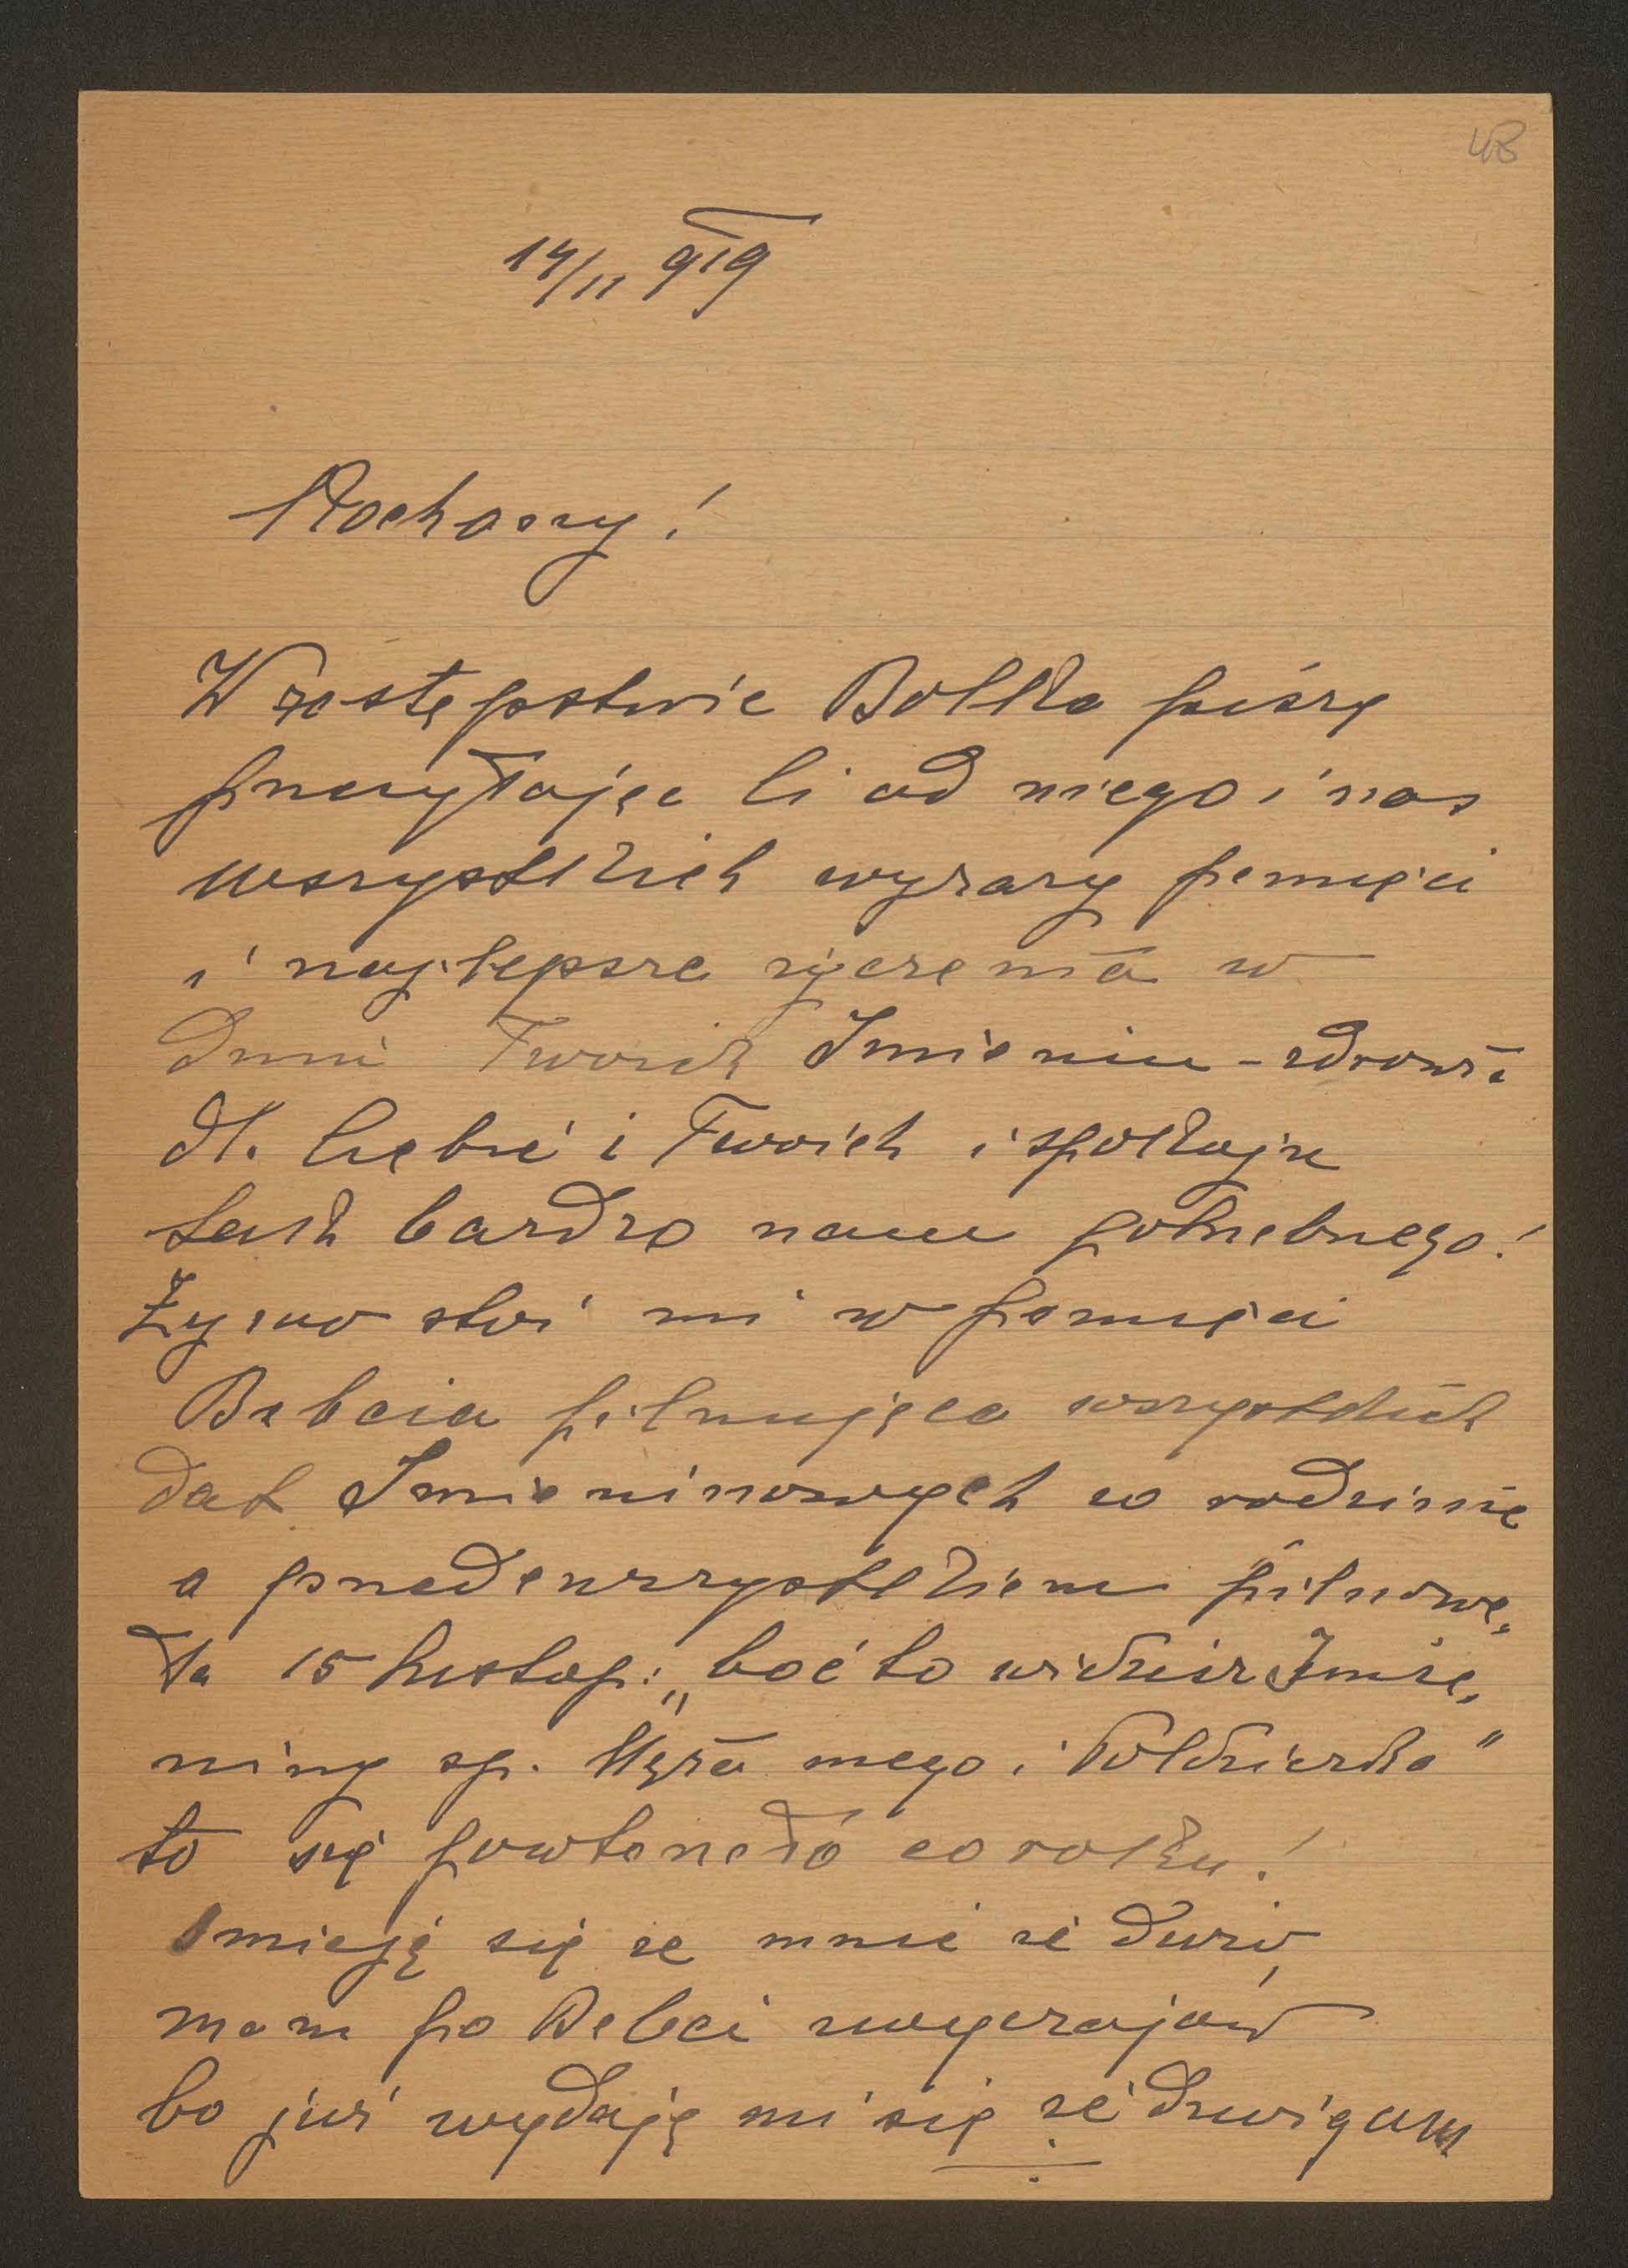 48
14/11 919
Kochany!
W zastępstwie Bolka piszę
przesyłając Ci od niego i nas
wszystkich wyrazy pamięci
i najlepsze życzenia w
dniu Twoich Imienin - zdrowia
dl. Ciebie i Twoich i spokoju
tak bardzo nam potrzebnego!
Żywo stoi mi w pamięci
Babcia pilnująca wszystkich
dat Imieninowych w rodzinie
a przedewszystkiem pilnowa,
ła 15 listop: „boć to widzisz Imie,
niny sp. Męża mego i Poldzierka"
to się powtarzało co roku!
Śmieją się ze mnie że dużo
mam po Babci zwyczajów
bo już wydaję mi się że dźwigam